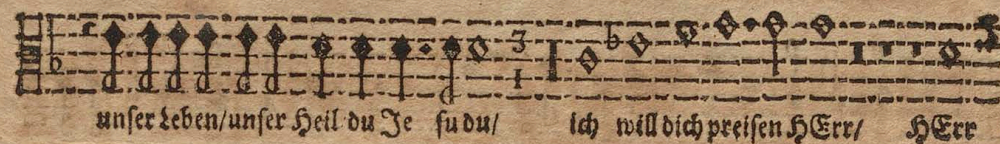 3
1
unser Leben/unser Heil du Je su du/ ich will dich preisen HErr/ HErr